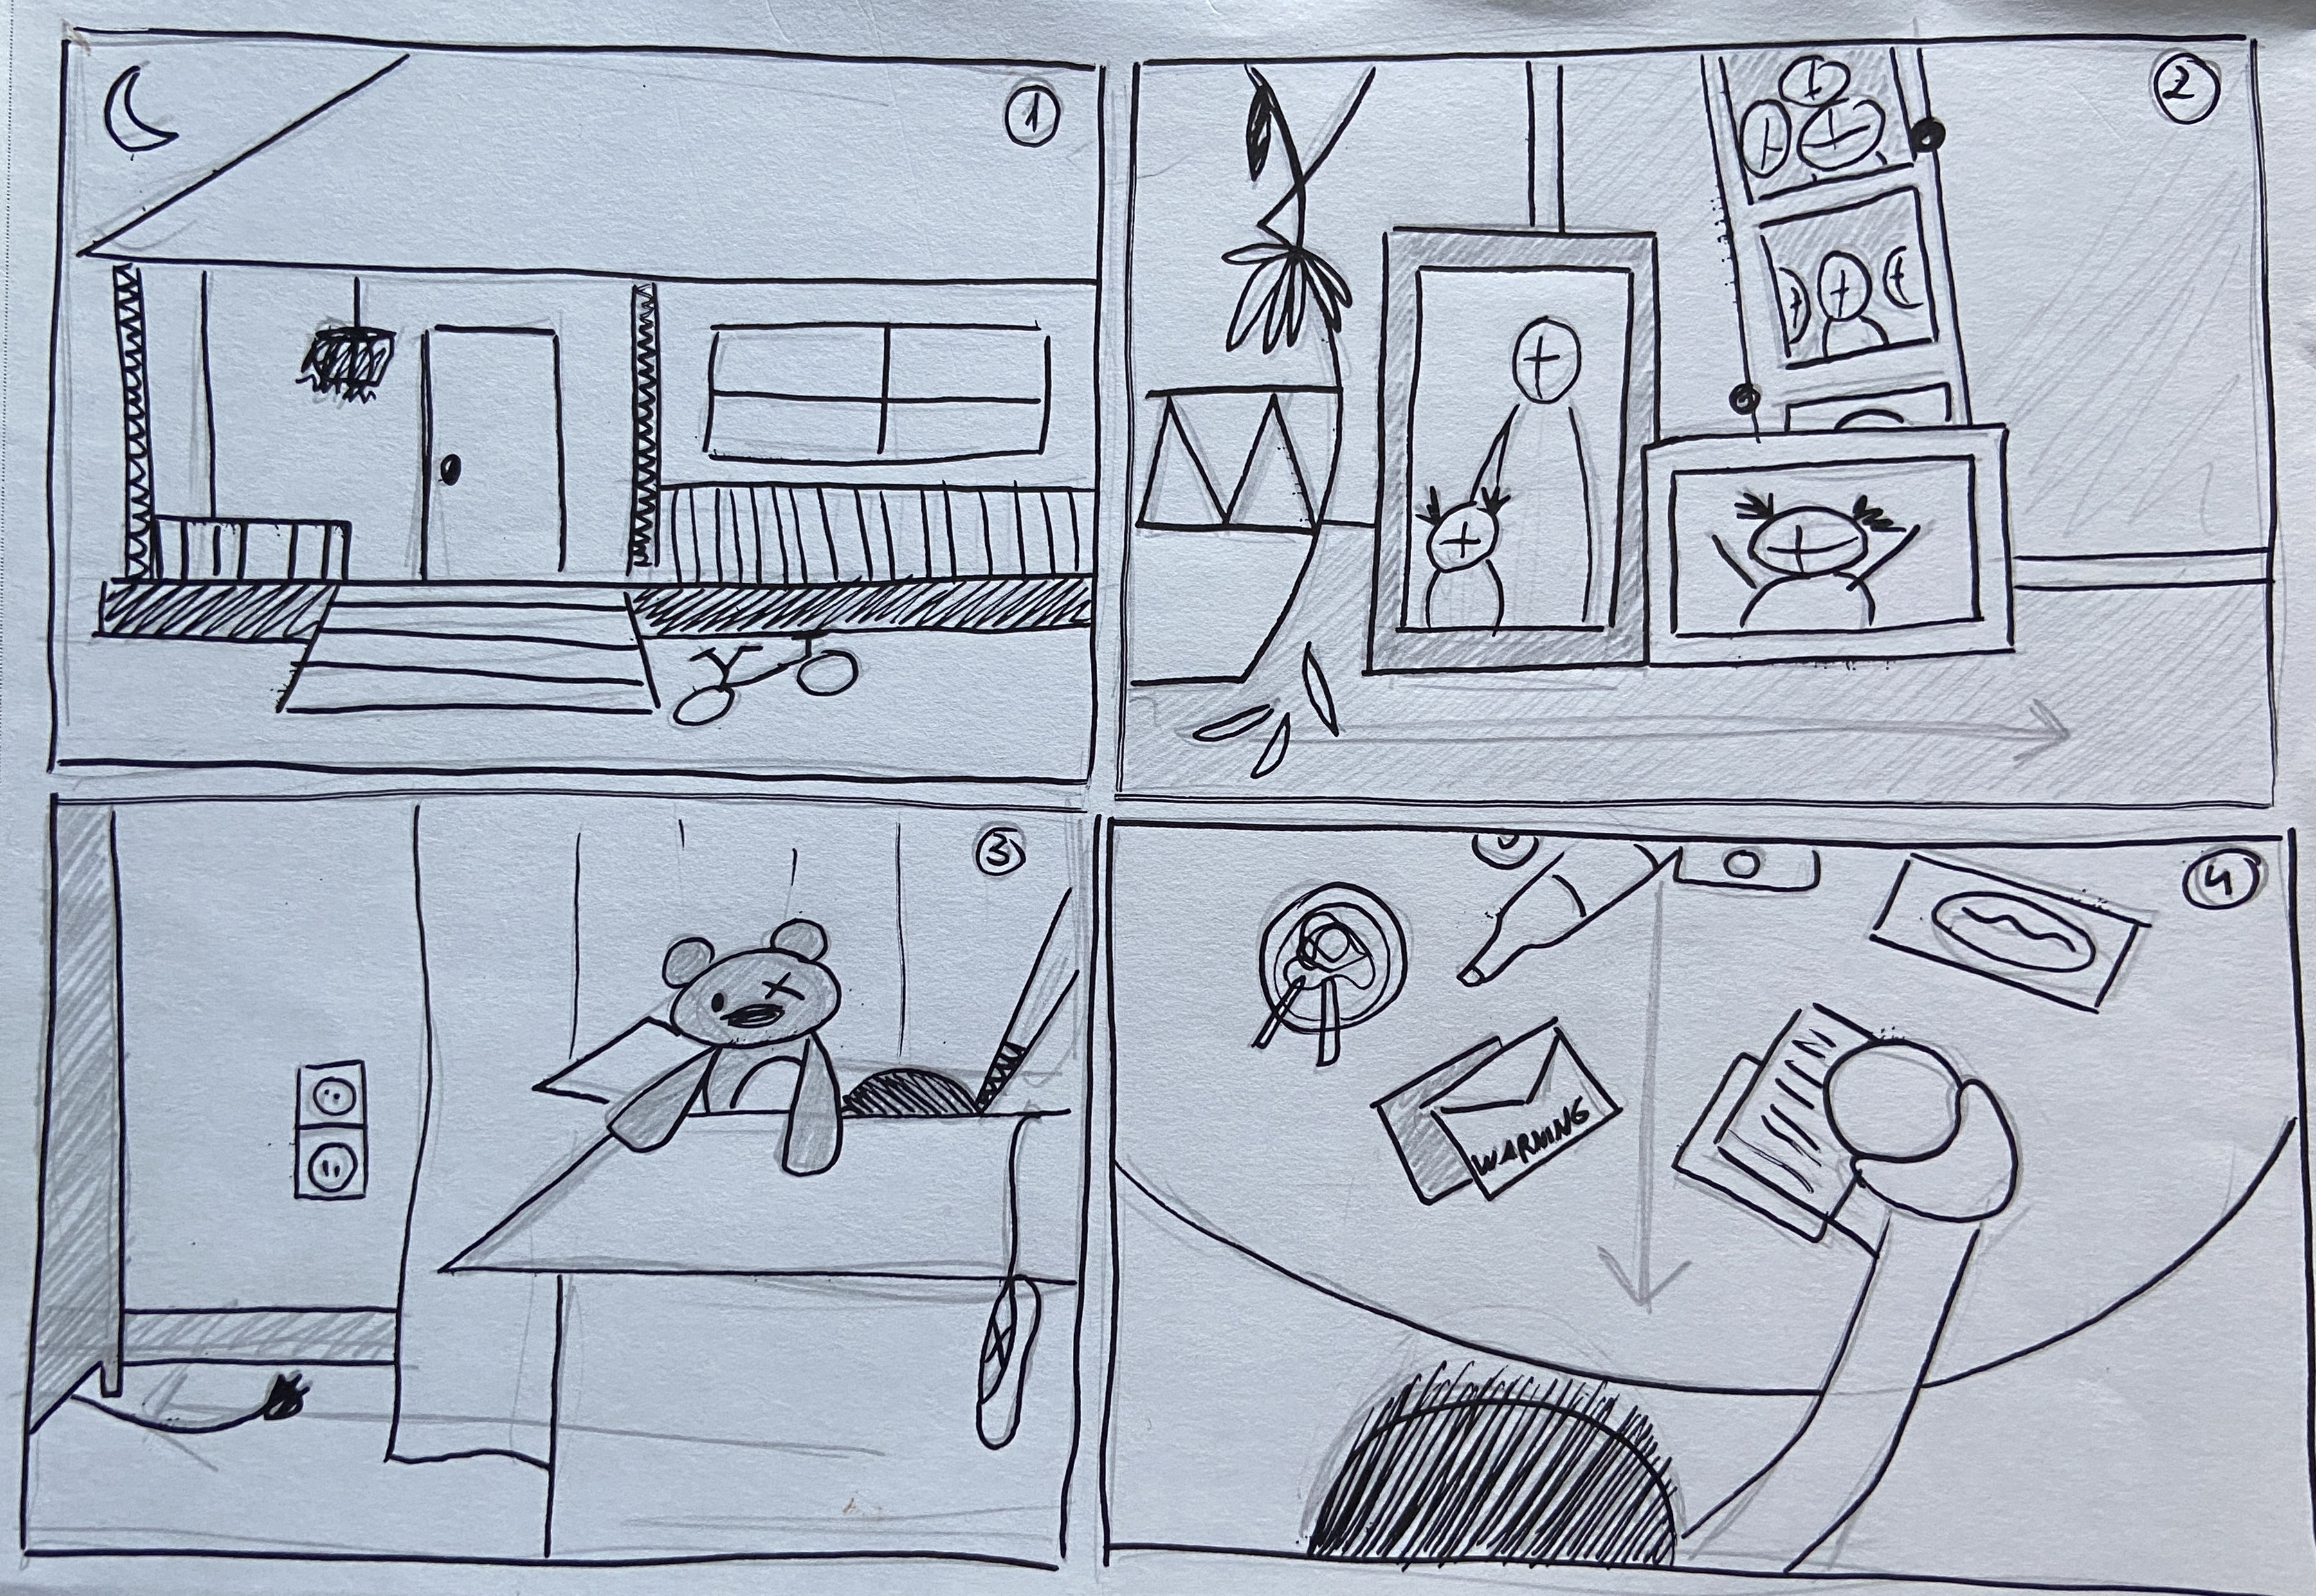 1
2
3
4
WARNING